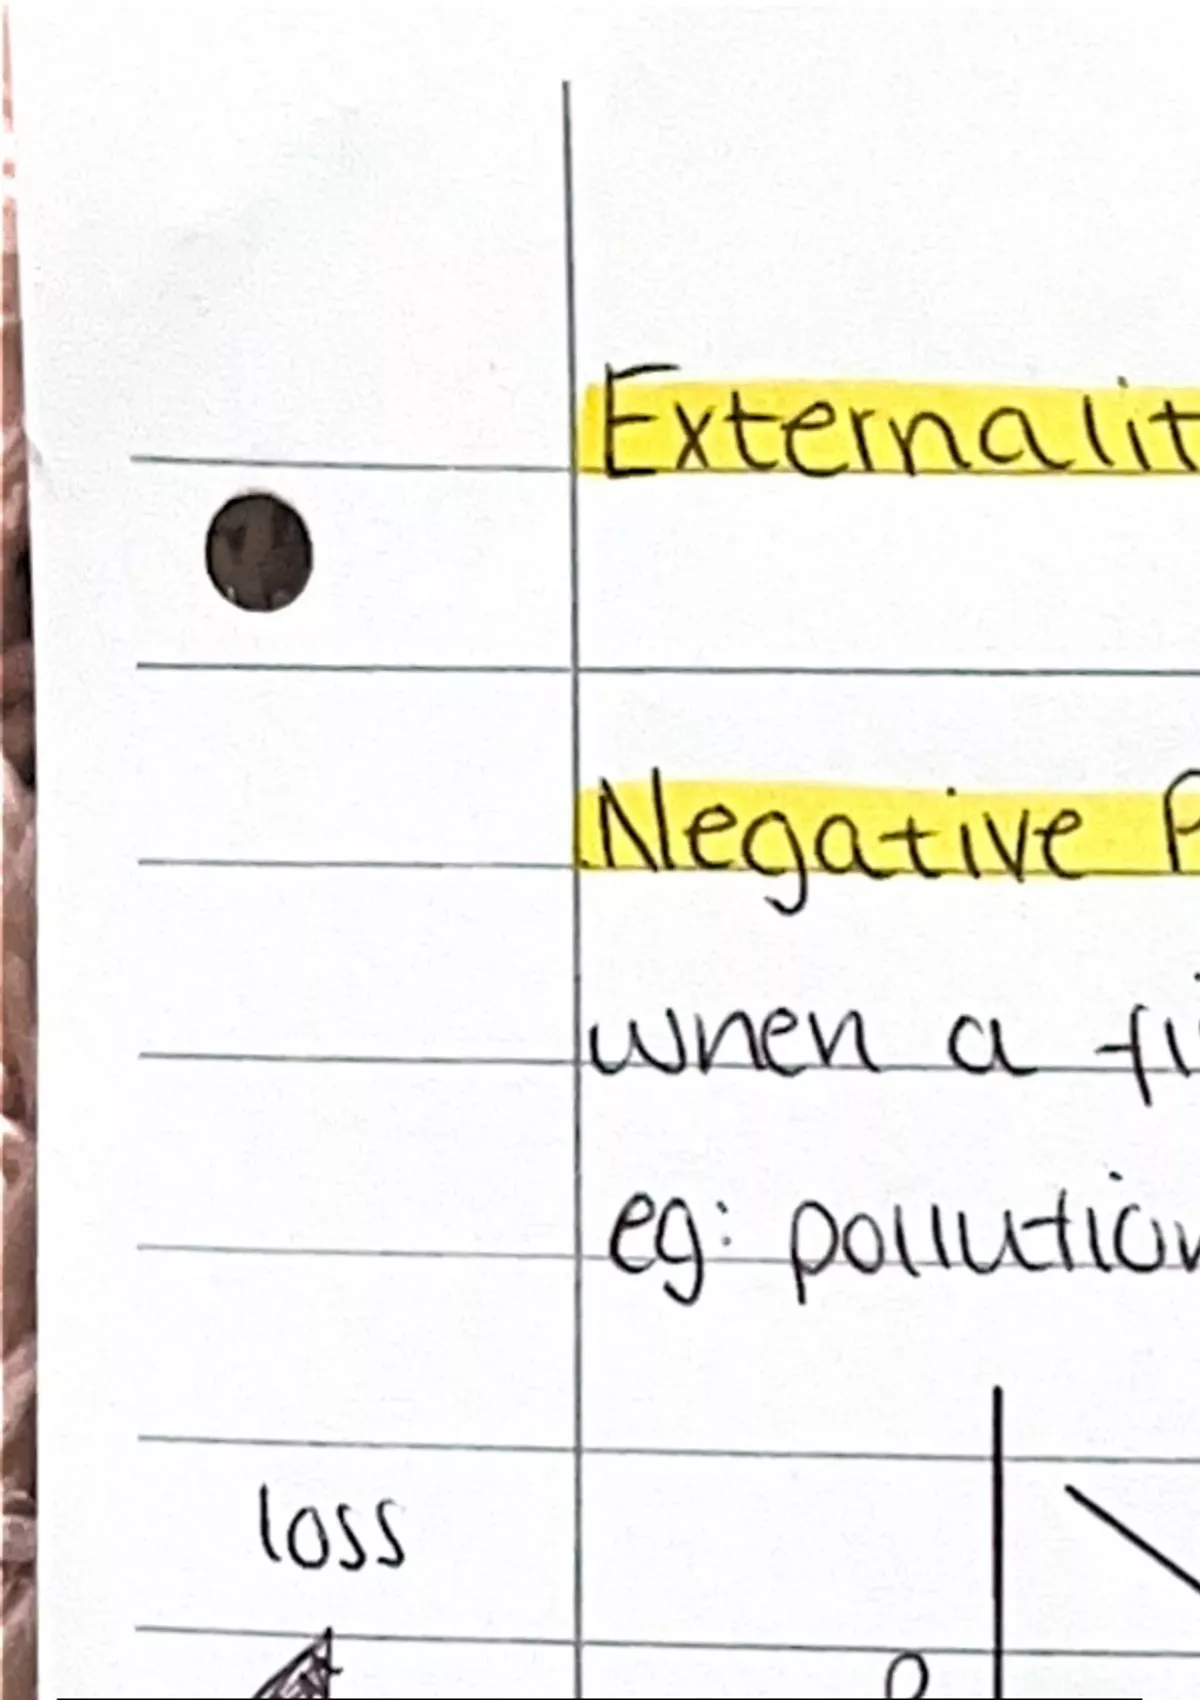 Externalit
Negative P
when a fi
eg: pollution
loss